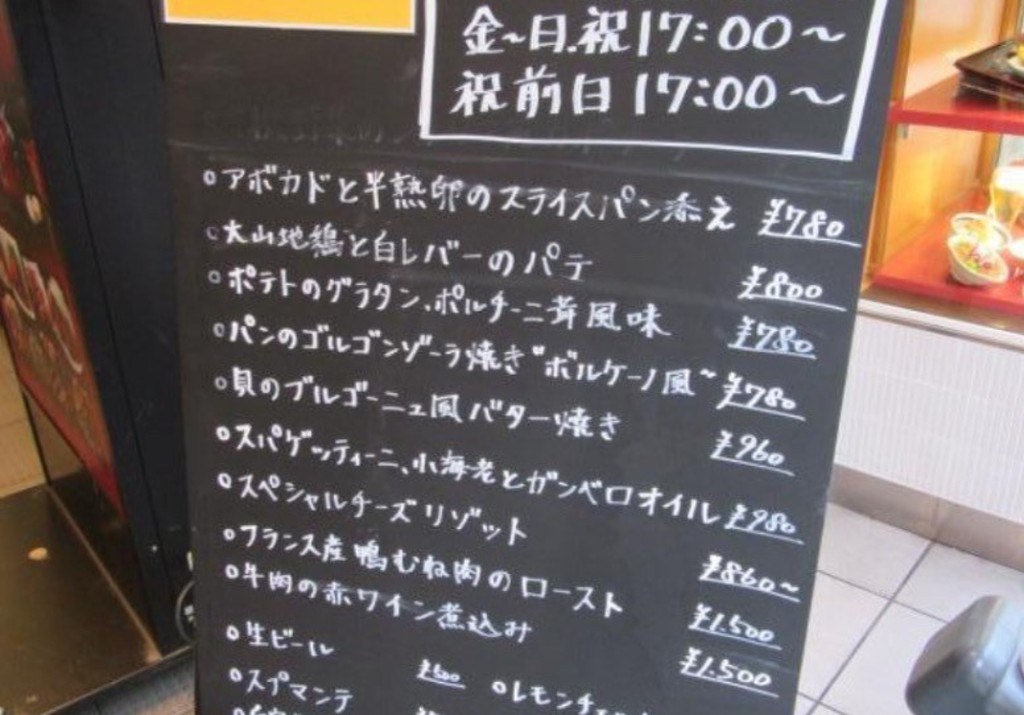 金~日.祝17:00~
祝前日17:00~
○アボカドと半熟卵のスライスパン添え ¥780
○大山地鶏と白レバーのパテ ¥800
○ポテトのグラタン、ポルチーニ茸風味 ¥780
○パンのゴルゴンゾーラ焼き“ボルケーノ風~ ¥780
○貝のブルゴーニュ風バター焼き ¥960
○スパゲッティーニ、小海老とガンベロオイル ¥980
○スペシャルチーズリゾット ¥860~
○フランス産鴨むね肉のロースト ¥1.500
○牛肉の赤ワイン煮込み ¥1.500
○生ビール ¥500 ○レモンチ
○スプマンテ